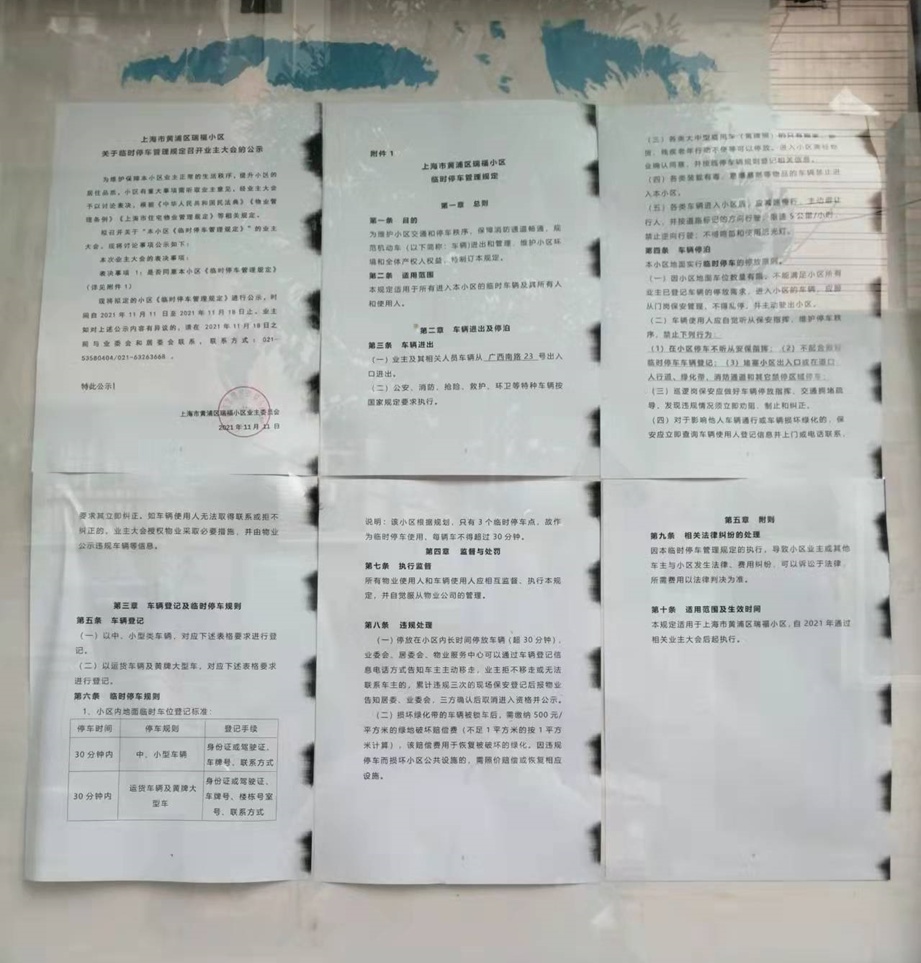 上海市黄浦区瑞福小区
关于临时停车管理规定召开业主大会的公示
为维护保障本小区业主正常的生活秩序，提升小区的
居住品质，小区有重大事项需听取业主意见，经业主大会
予以讨论表决，根据《中华人民共和国民法典》《物业管
理条例》《上海市住宅物业管理规定》等相关规定，
拟召开关于“本小区《临时停车管理规定》”的业主
大会，现将讨论事项公示如下：
本次业主大会的表决事项：
表决事项 1：是否同意本小区《临时停车管理规定》
（详见附件1）
现将拟定的小区《临时停车管理规定》进行公示，时
间自 2021 年 11 月 11 日至 2021 年 11 月 18 日止。业主
如对上述公示内容有异议的，请在 2021 年 11 月 18 日之
前与业委会和居委会联系，联系方式：021-
53580404/021-63263668 。
特此公示！
上海市黄浦区瑞福小区业主委员会
2021 年 11 月 11 日
附件 1
上海市黄浦区瑞福小区
临时停车管理规定
第一章 总则
第一条 目的
为维护小区交通和停车秩序，保障消防通道畅通，规
范机动车（以下简称：车辆)进出和管理，维护小区环
境和全体产权人权益，特制订本规定。
第二条 适用范围
本规定适用于所有进入本小区的临时车辆及其所有人
和使用人。
第二章 车辆进出及停泊
第三条 车辆进出
（一）业主及其相关人员车辆从 广西南路 23 号出入
口进出。
（二）公安、消防、抢险、救护、环卫等特种车辆按
国家规定要求执行。
病、残疾老年行动不便等可以停放，进入小区需经物
业确认同意，并按临停车辆规则登记相关信息。
（四）各类装载有毒、易爆易燃等物品的车辆禁止进
入本小区。
（五）各类车辆进入小区后，应减速慢行、主动避让
行人，并按道路标记的方向行驶，限速 5 公里/小时，
禁止逆向行驶；不得鸣笛和使用远光灯。
第四条 车辆停泊
本小区地面实行临时停车的停放原则。
（一）因小区地面车位数量有限，不能满足小区所有
业主已登记车辆的停放需求，进入小区的车辆，应服
从门岗保安管理、不得乱停，并主动驶出小区。
（二）车辆使用人应自觉听从保安指挥，维护停车秩
序，禁止下列行为：
（1）在小区停车不听从安保指挥；（2）不配合做好
临时停车车辆登记；（3）堵塞小区出入口或在道口、
人行道、绿化带、消防通道和其它禁停区域停车；
（三）巡逻岗保安应做好车辆停放指挥、交通拥堵疏
导，发现违规情况须立即劝阻、制止和纠正。
（四）对于影响他人车辆通行或车辆损坏绿化的，保
安应立即查询车辆使用人登记信息并上门或电话联系，
要求其立即纠正。如车辆使用人无法取得联系或拒不
纠正的，业主大会授权物业采取必要措施，并由物业
公示违规车辆等信息。
第三章 车辆登记及临时停车规则
第五条 车辆登记
（一）以中、小型类车辆，对应下述表格要求进行登
记。
（二）以运货车辆及黄牌大型车，对应下述表格要求
进行登记。
第六条 临时停车规则
1、小区内地面临时车位登记标准：
停车时间 停车规则 登记手续
30 分钟内 中、小型车辆 身份证或驾驶证、
车牌号、联系方式
30 分钟内 运货车辆及黄牌大
型车 身份证或驾驶证、
车牌号、楼栋号室
号、联系方式
说明：该小区根据规划，只有 3 个临时停车点，故作
为临时停车使用，每辆车不得超过 30 分钟。
第四章 监督与处罚
第七条 执行监督
所有物业使用人和车辆使用人应相互监督、执行本规
定，并自觉服从物业公司的管理。
第八条 违规处理
（一）停放在小区内长时间停放车辆（超 30 分钟），
业委会、居委会、物业服务中心可以通过车辆登记信
息电话方式告知车主主动移走，业主拒不移走或无法
联系车主的，累计违规三次的现场保安登记后报物业
告知居委、业委会，三方确认后取消进入资格并公示。
（二）损坏绿化带的车辆被锁车后，需缴纳 500 元/
平方米的绿地破坏赔偿费（不足 1 平方米的按 1 平方
米计算），该赔偿费用于恢复被破坏的绿化。因违规
停车而损坏小区公共设施的，需照价赔偿或恢复相应
设施。
第五章 附则
第九条 相关法律纠纷的处理
因本临时停车管理规定的执行，导致小区业主或其他
车主与小区发生法律、费用纠纷，可以诉讼于法律，
所需费用以法律判决为准。
第十条 适用范围及生效时间
本规定适用于上海市黄浦区瑞福小区，自 2021 年通过
相关业主大会后起执行。